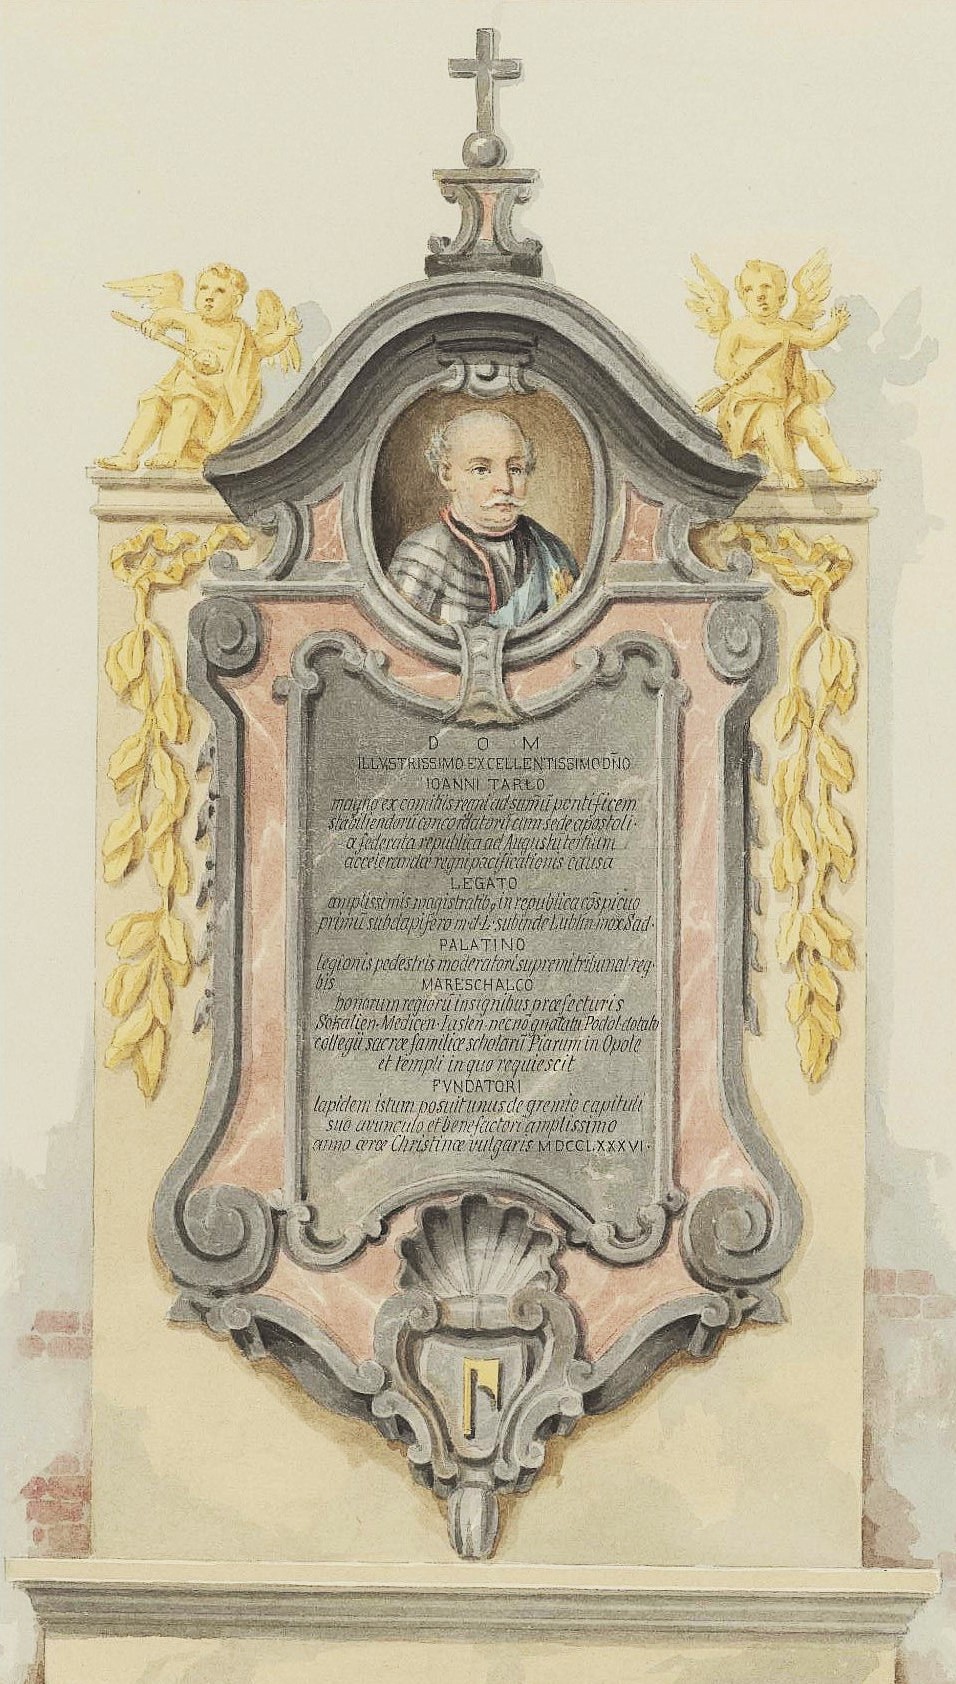 D O M
ILLVSTRISSIMO EXCELLENTISSIMO DÑO
IOANNI TARŁO
magno ex comitiis regni ad sum̄ū pontificem
stabiliendorū concordatorū cum sede apostoli·
a federata republica ad Augustū tertium
accelerandæ regni pacificationis causa
LEGATO
amplissimis magistratib, in republica cōspicuo
primū subdapifero m·d·L· subinde Lublin mox Sad·
PALATINO
legionis pedestris moderatori supremi tribunal·reg·
bis MARESCHALCO
bonorum regiorū insignibus præfecturis
Sokalien·Medicen·Iaslen·necnō gnalatu Podol·dotato
collegii sacræ familiæ scholarū Piarum in Opole
et templi in quo requiescit
FVNDATORI
lapidem istum posuit unus de gremio capituli
suo avunculo et benefactori amplissimo
anno æræ Christinæ vulgaris MDCCLXXXVI·